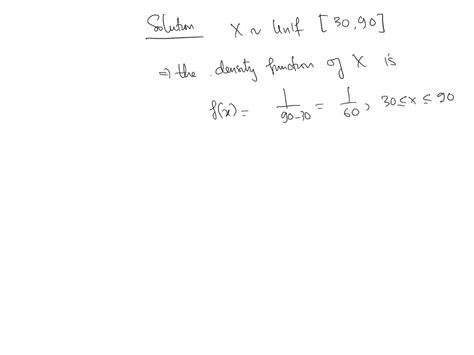 Solution X ~ Unif [30,90]
⇒ the density function of X is
f(x) = 1/(90-30) = 1/60, 30 ≤ x ≤ 90